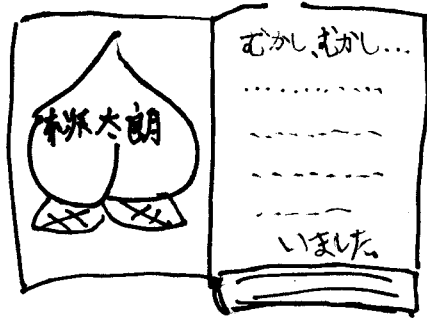 桃太朗
むかし、むかし…
いました。